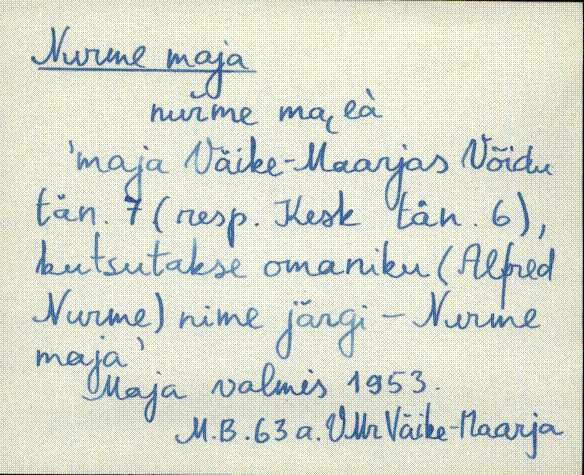 Nurme maja
nurme ma͔eà
'maja Väike-Maarjas Võidu
tän. 7 (resp. Kesk tän. 6),
kutsutakse omaniku (Alfred
Nurme) nime järgi – Nurme
maja'
Maja valmis 1953.
M.B. 63 a. VMr Väike-Maarja